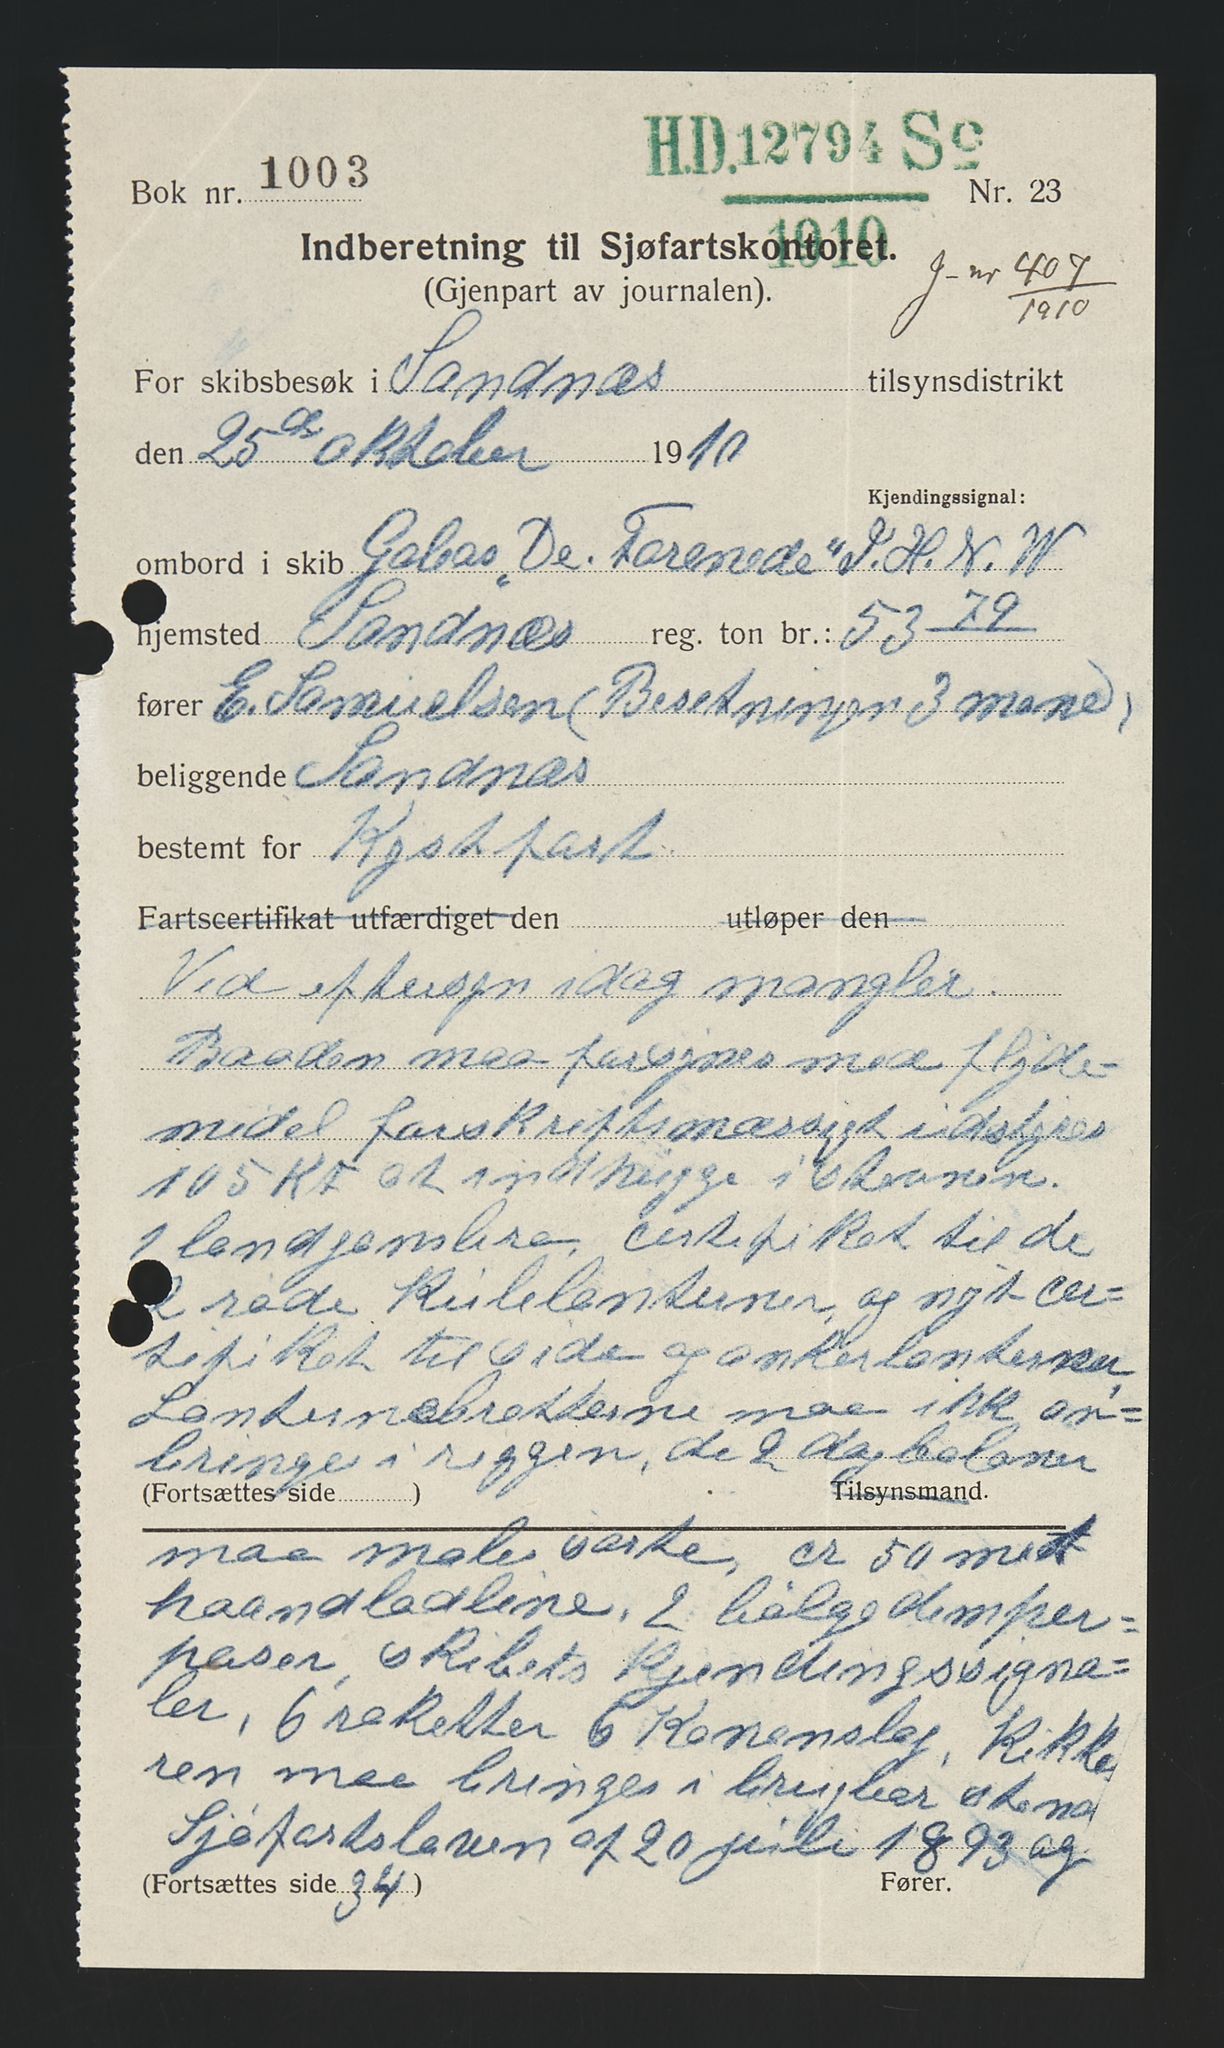 H.D. 12794 Sc
1910
Bok nr. 1003
Nr. 23
Indberetning til Sjøfartskontoret.
(Gjenpart av journalen).
J-nr 407
1910
For skibsbesøk i Sandnæs tilsynsdistrikt
den 25de oktober 1910
Kjendingssignal:
ombord i skib Galeas „De. Forenede" J. H. N. W
hjemsted Sandnæs reg. ton br.: 53 79
fører E. Samuelsen (Besetningen 3 mand)
beliggende Sandnæs
bestemt for Kystfart
Fartscertifikat utfærdiget den utløper den
Vid eftersyn idag mangler.
Baaden maa forsynes med flyde=
midel forskriftsmæssigt idstyres
105 Kt at indhugge i stevnen.
1 landgansbro, certifikat til de
2 røde Kulelanterner, og nyt cer=
tifikat til side og ankerlanterner,
Lanternebretterne maa ikk an=
bringes i riggen, de 2 dagbaloner
(Fortsættes side )
Tilsynsmand.
maa males sorte, er 50 met
haandlodline, 2 bølgedemper=
poser, skibets Kjendingssigna=
ler, 6 raketter 6 Kanonslag, Kikke
ren maa bringes i brugbar stand
Sjøfartsloven af 20 juli 1893 og
(Fortsættes side 34)
Fører.